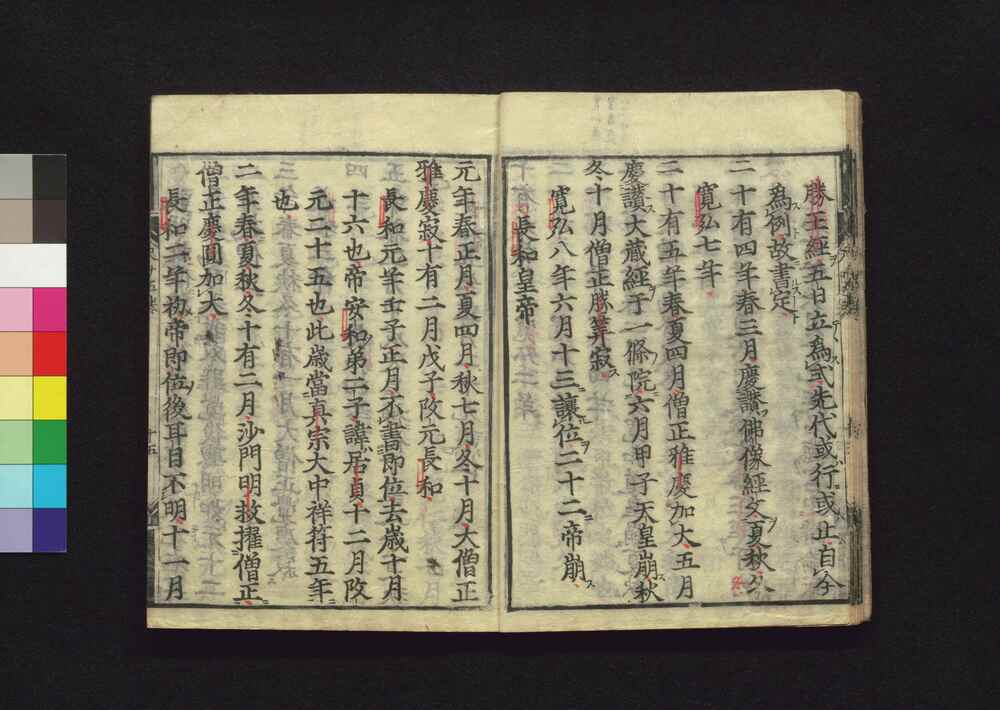 勝王經五日立為式先代或行或止自今
為例故書定
二十有四年春三月慶讃佛像經夂夏秋冬
寛弘七年
二十有五年春夏四月僧正雅慶加大五月
慶讃大藏經于一條院六月甲子天皇崩秋
冬十月僧正勝筭寂
寛弘八年六月十三讓位二十二帝崩
長和皇帝
元年春正月夏四月秋七月冬十月大僧正
雅慶寂十有二月戊子改元長和
長和元年壬子正月不書即位去歳十月
十六也帝安和弟二子諱居貞十二月改
元二十五也此歳當真宗大中祥符五年
也
二年春夏秋冬十有二月沙門明救擢僧正
僧正慶圓加大
長和二年初帝即位後耳目不明十一月